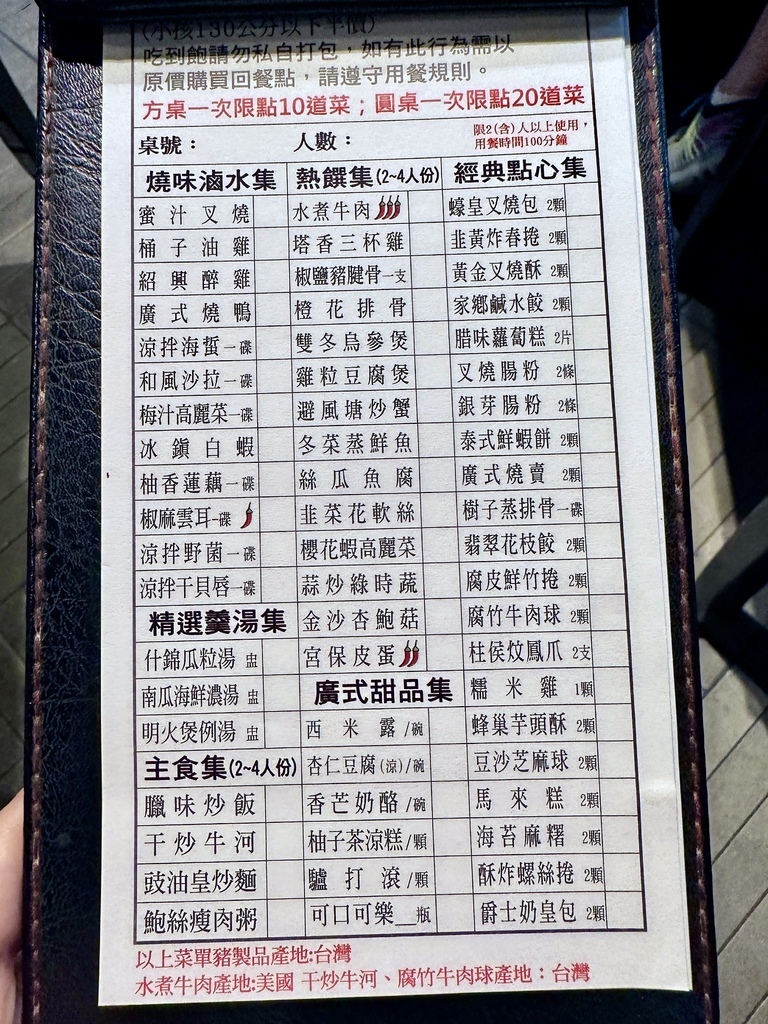 (小孩130公分以下半價)
吃到飽請勿私自打包，如有此行為需以
原價購買回餐點，請遵守用餐規則。
方桌一次限點10道菜；圓桌一次限點20道菜
桌號：
人數：
限2(含)人以上使用，
用餐時間100分鐘
燒味滷水集
蜜汁叉燒
桶子油雞
紹興醉雞
廣式燒鴨
涼拌海蜇一碟
和風沙拉一碟
梅汁高麗菜一碟
冰鎮白蝦
柚香蓮藕一碟
椒麻雲耳一碟
涼拌野菌一碟
涼拌干貝唇一碟
精選羹湯集
什錦瓜粒湯 盅
南瓜海鮮濃湯 盅
明火煲例湯 盅
主食集(2~4人份)
臘味炒飯
干炒牛河
豉油皇炒麵
鮑絲瘦肉粥
熱饌集(2~4人份)
水煮牛肉
塔香三杯雞
椒鹽豬腱骨一支
橙花排骨
雙冬烏參煲
雞粒豆腐煲
避風塘炒蟹
冬菜蒸鮮魚
絲瓜魚腐
韭菜花軟絲
櫻花蝦高麗菜
蒜炒綠時蔬
金沙杏鮑菇
宮保皮蛋
廣式甜品集
西米露/碗
杏仁豆腐(涼)/碗
香芒奶酪/碗
柚子茶涼糕/顆
驢打滾/顆
可口可樂__瓶
經典點心集
蠔皇叉燒包 2顆
韭黃炸春捲 2顆
黃金叉燒酥 2顆
家鄉鹹水餃 2顆
腊味蘿蔔糕 2片
叉燒腸粉 2條
銀芽腸粉 2條
泰式鮮蝦餅 2顆
廣式燒賣 2顆
樹子蒸排骨一碟
翡翠花枝餃 2顆
腐皮鮮竹捲 2顆
腐竹牛肉球 2顆
柱侯炆鳳爪 2支
糯米雞 1顆
蜂巢芋頭酥 2顆
豆沙芝麻球 2顆
馬來糕 2顆
海苔麻糬 2顆
酥炸螺絲捲 2顆
爵士奶皇包 2顆
以上菜單豬製品產地:台灣
水煮牛肉產地:美國 干炒牛河、腐竹牛肉球產地：台灣